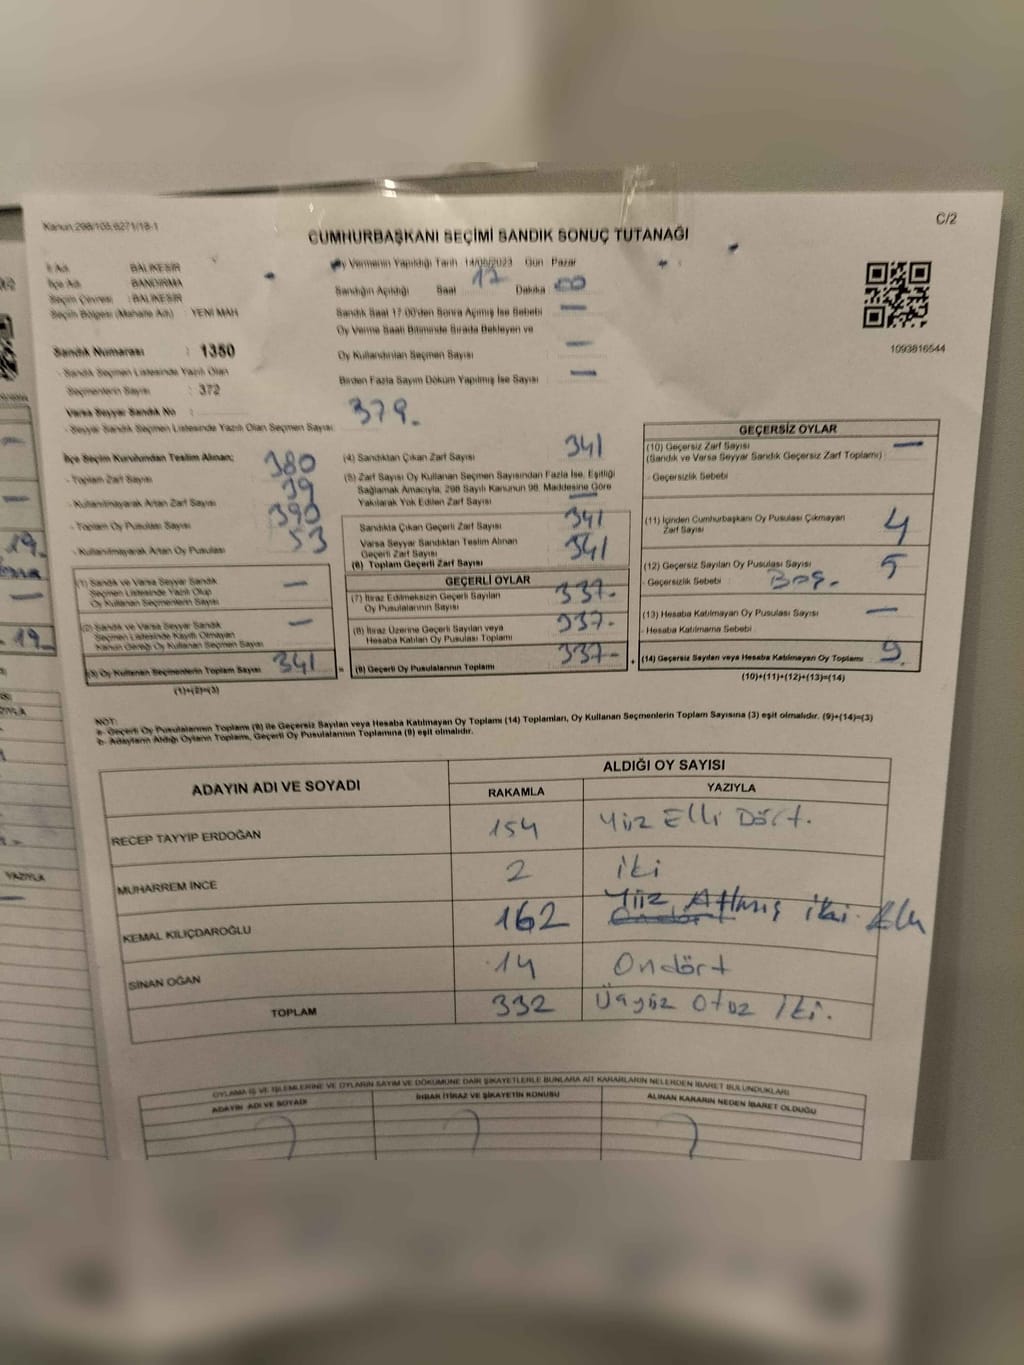 Kanun:298/105,6271/18-1
C/2
CUMHURBAŞKANI SEÇİMİ SANDIK SONUÇ TUTANAĞI
İl Adı : BALIKESİR
İlçe Adı : BANDIRMA
Seçim Çevresi : BALIKESİR
Seçim Bölgesi (Mahalle Adı) : YENİ MAH
Sandık Numarası : 1350
- Sandık Seçmen Listesinde Yazılı Olan
Seçmenlerin Sayısı : 372
Varsa Seyyar Sandık No :
- Seyyar Sandık Seçmen Listesinde Yazılı Olan Seçmen Sayısı: 379.
Oy Vermenin Yapıldığı Tarih 14/05/2023 Gün Pazar
Sandığın Açıldığı Saat 17 Dakika 00
Sandık Saat 17.00'den Sonra Açılmış İse Sebebi —
Oy Verme Saati Bitiminde Sırada Bekleyen ve
Oy Kullandırılan Seçmen Sayısı —
Birden Fazla Sayım Döküm Yapılmış İse Sayısı —
1093816544
İlçe Seçim Kurulundan Teslim Alınan;
- Toplam Zarf Sayısı 380
- Kullanılmayarak Artan Zarf Sayısı 39
- Toplam Oy Pusulası Sayısı 390
- Kullanılmayarak Artan Oy Pusulası 53
(1) Sandık ve Varsa Seyyar Sandık
Seçmen Listesinde Yazılı Olup
Oy Kullanan Seçmenlerin Sayısı —
(2) Sandık ve Varsa Seyyar Sandık
Seçmen Listesinde Kayıtlı Olmayan
Kanun Gereği Oy Kullanan Seçmen Sayısı —
(3) Oy Kullanan Seçmenlerin Toplam Sayısı 341
(1)+(2)=(3)
(4) Sandıktan Çıkan Zarf Sayısı 341
(5) Zarf Sayısı Oy Kullanan Seçmen Sayısından Fazla İse, Eşitliği
Sağlamak Amacıyla, 298 Sayılı Kanunun 98. Maddesine Göre
Yakılarak Yok Edilen Zarf Sayısı —
Sandıkta Çıkan Geçerli Zarf Sayısı 341
Varsa Seyyar Sandıktan Teslim Alınan
Geçerli Zarf Sayısı
(6) Toplam Geçerli Zarf Sayısı 341
GEÇERLİ OYLAR
(7) İtiraz Edilmeksizin Geçerli Sayılan
Oy Pusulalarının Sayısı 337-
(8) İtiraz Üzerine Geçerli Sayılan veya
Hesaba Katılan Oy Pusulası Toplamı 337-
= (9) Geçerli Oy Pusulalarının Toplamı 337-
GEÇERSİZ OYLAR
(10) Geçersiz Zarf Sayısı —
(Sandık ve Varsa Seyyar Sandık Geçersiz Zarf Toplamı)
- Geçersizlik Sebebi
(11) İçinden Cumhurbaşkanı Oy Pusulası Çıkmayan
Zarf Sayısı 4
(12) Geçersiz Sayılan Oy Pusulası Sayısı 5
- Geçersizlik Sebebi :
(13) Hesaba Katılmayan Oy Pusulası Sayısı —
- Hesaba Katılmama Sebebi
+ (14) Geçersiz Sayılan veya Hesaba Katılmayan Oy Toplamı 9.
(10)+(11)+(12)+(13)=(14)
NOT:
a- Geçerli Oy Pusulalarının Toplamı (9) ile Geçersiz Sayılan veya Hesaba Katılmayan Oy Toplamı (14) Toplamları, Oy Kullanan Seçmenlerin Toplam Sayısına (3) eşit olmalıdır. (9)+(14)=(3)
b- Adayların Aldığı Oyların Toplamı, Geçerli Oy Pusulalarının Toplamına (9) eşit olmalıdır.
ADAYIN ADI VE SOYADI
ALDIĞI OY SAYISI
RAKAMLA YAZIYLA
RECEP TAYYİP ERDOĞAN 154 Yüz Elli Dört.
MUHARREM İNCE 2 iki
KEMAL KILIÇDAROĞLU 162 Yüz Atmış iki
SİNAN OĞAN 14 Ondört
TOPLAM 332 Üçyüz Otuz İki.
OYLAMA İŞ VE İŞLEMLERİNE VE OYLARIN SAYIM VE DÖKÜMÜNE DAİR ŞİKAYETLERLE BUNLARA AİT KARARLARIN NELERDEN İBARET BULUNDUKLARI
ADAYIN ADI VE SOYADI İHBAR İTİRAZ VE ŞİKAYETİN KONUSU ALINAN KARARIN NEDEN İBARET OLDUĞU
19
19
YAZIYLA